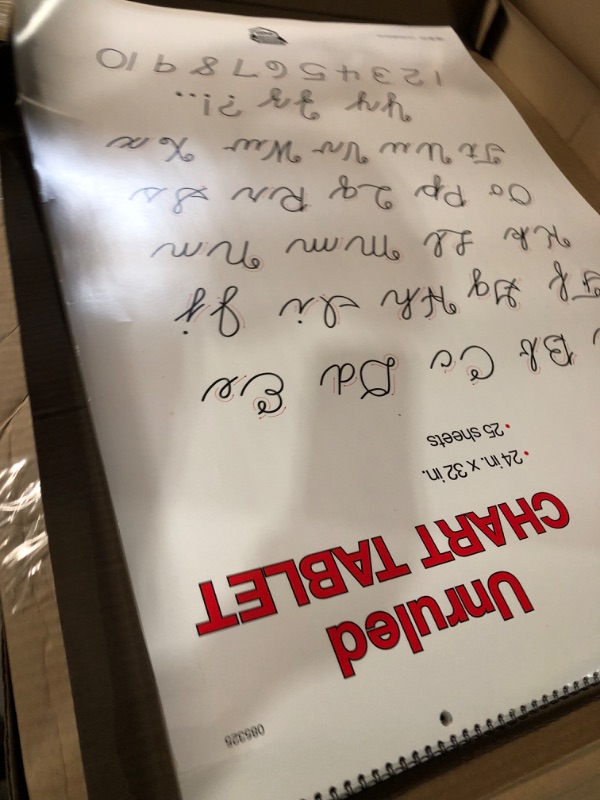 085325
Unruled
CHART TABLET
• 24 in. x 32 in.
• 25 sheets
Bb Cc Dd Ee
Ff Gg Hh Ii Jj
Kk Ll Mm Nn
Oo Pp Qq Rr Ss
Tt Uu Vv Ww Xx
Yy Zz ?!..
1 2 3 4 5 6 7 8 9 10